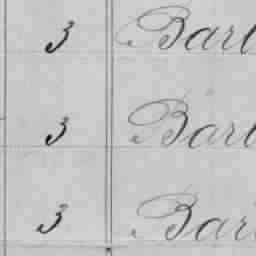 3 Barb
3 Barb
3 Bar